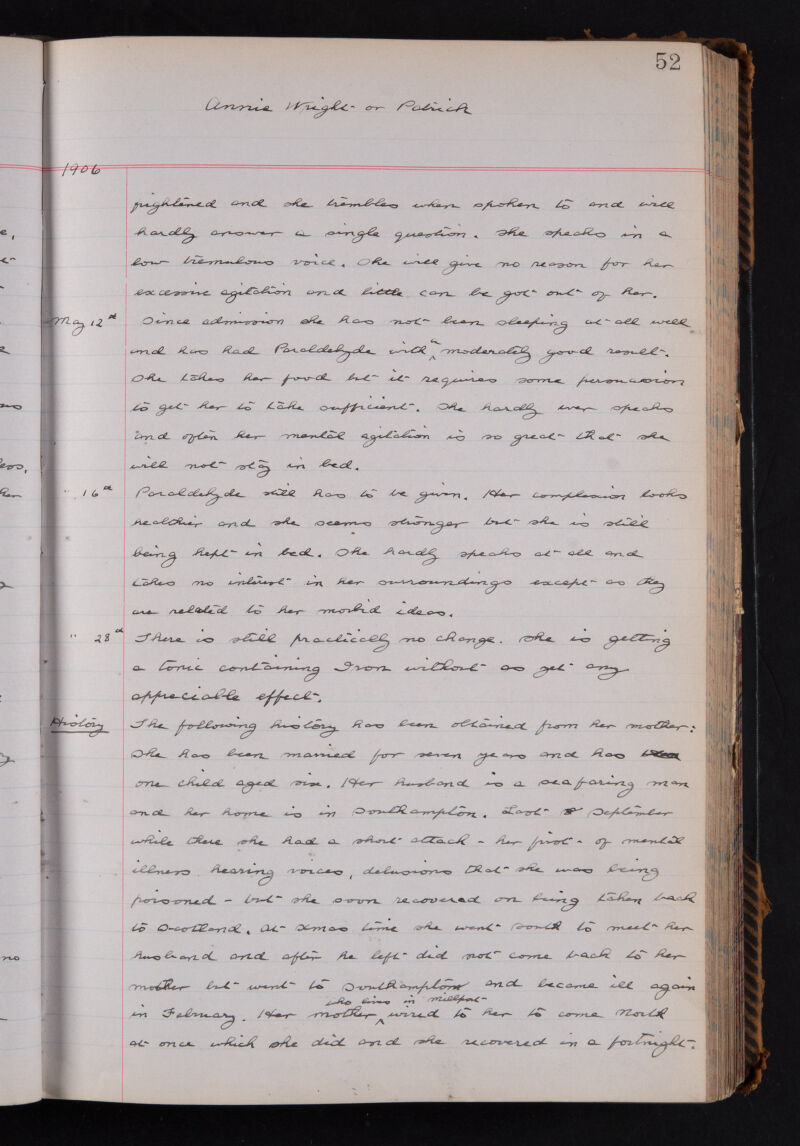 52
Annie Wright or Patrick
1906
frightened and she trembles when spoken to and will
hardly answer a single question. She speaks in a
low tremulous voice. She will give no reason for her
excessive agitation and little can be got out of her.
May 12th Since admission she has not been sleeping at all well
and has had Paraldehyde with a moderately good result.
She takes her food but it requires some persuasion
to get her to take sufficient. She hardly ever speaks
and often her mental agitation is so great that she
will not stay in bed.
" 16th Paraldehyde still has to be given. Her complexion looks
healthier and she seems stronger but she is still
being kept in bed. She hardly speaks at all and
takes no interest in her surroundings except as they
are related to her morbid ideas.
" 28th There is still practically no change. She is getting
a tonic containing Iron without as yet any
appreciable effect.
History The following history has been obtained from her mother:
She has been married for seven years and has
one child aged six. Her husband is a seafaring man
and her home is in Southampton. Last September
while there she had a short attack - her first - of mental
illness hearing voices, delusions that she was being
poisoned - but she soon recovered on being taken back
to Scotland. At Xmas time she went south to meet her
husband and after he left did not come back to her
mother but went to Southampton and became ill again
in February. Her mother who lives in Millport wired to her to come North
at once which she did and she recovered in a fortnight.